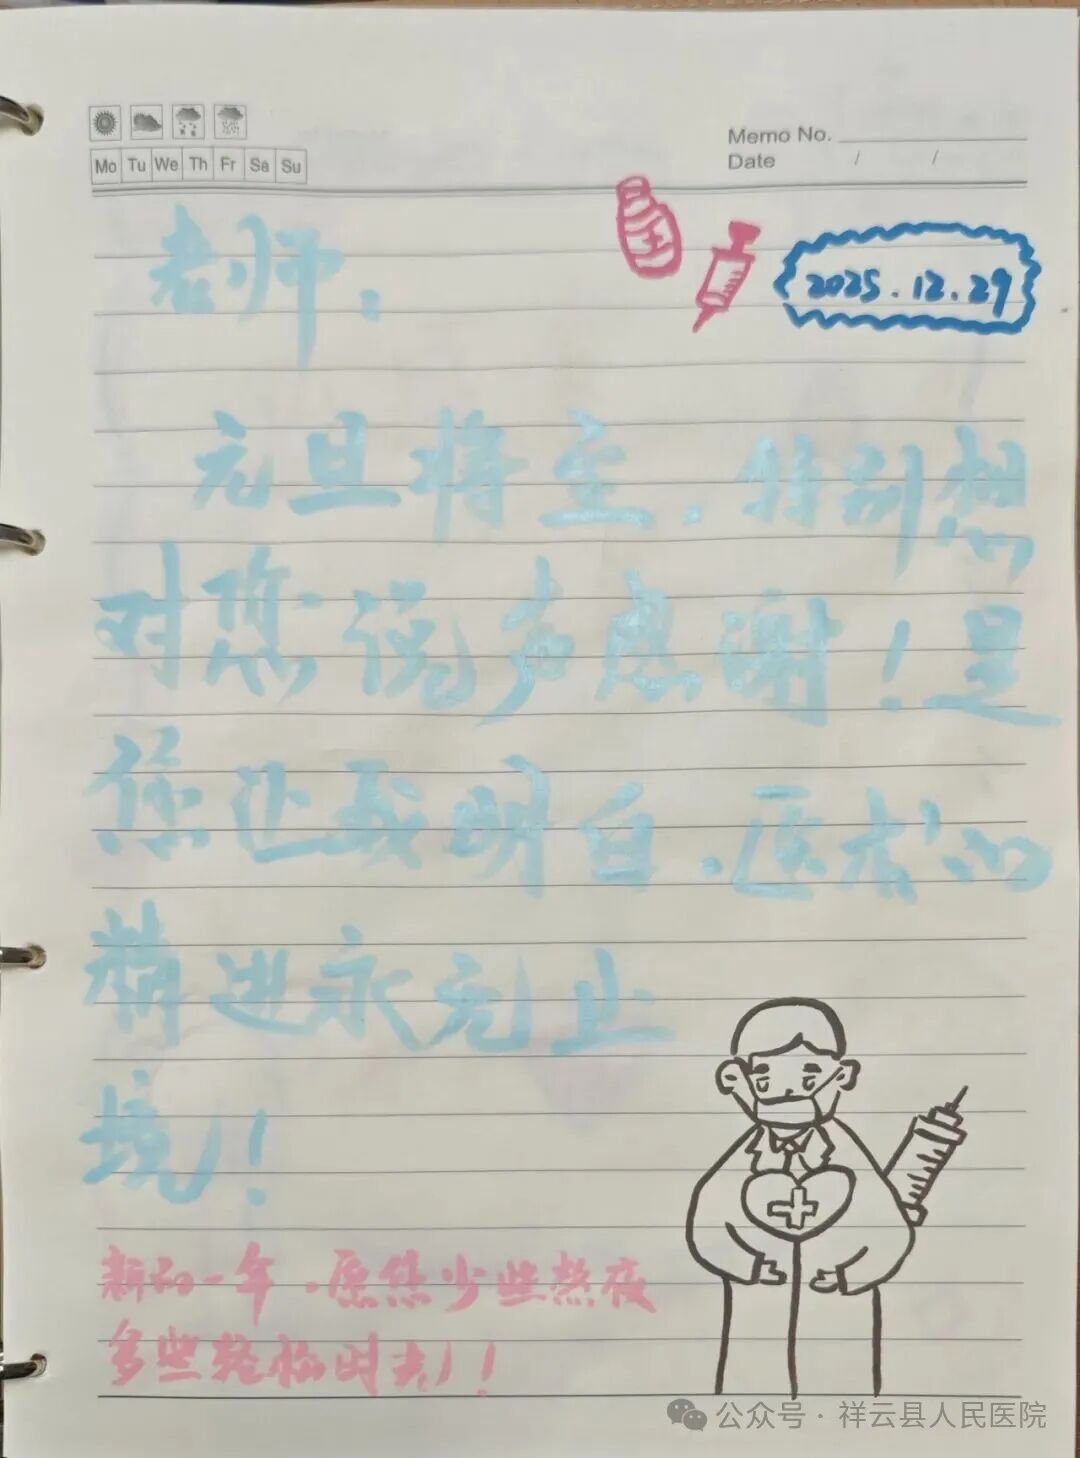 Mo Tu We Th Fr Sa Su
Memo No.
Date / /
2025.12.29
老师：
元旦将至，特别想
对您说声感谢！是
您让我明白，医术的
精进永无止
境！
新的一年，愿您少些熬夜
多些轻松时刻！！
公众号·祥云县人民医院